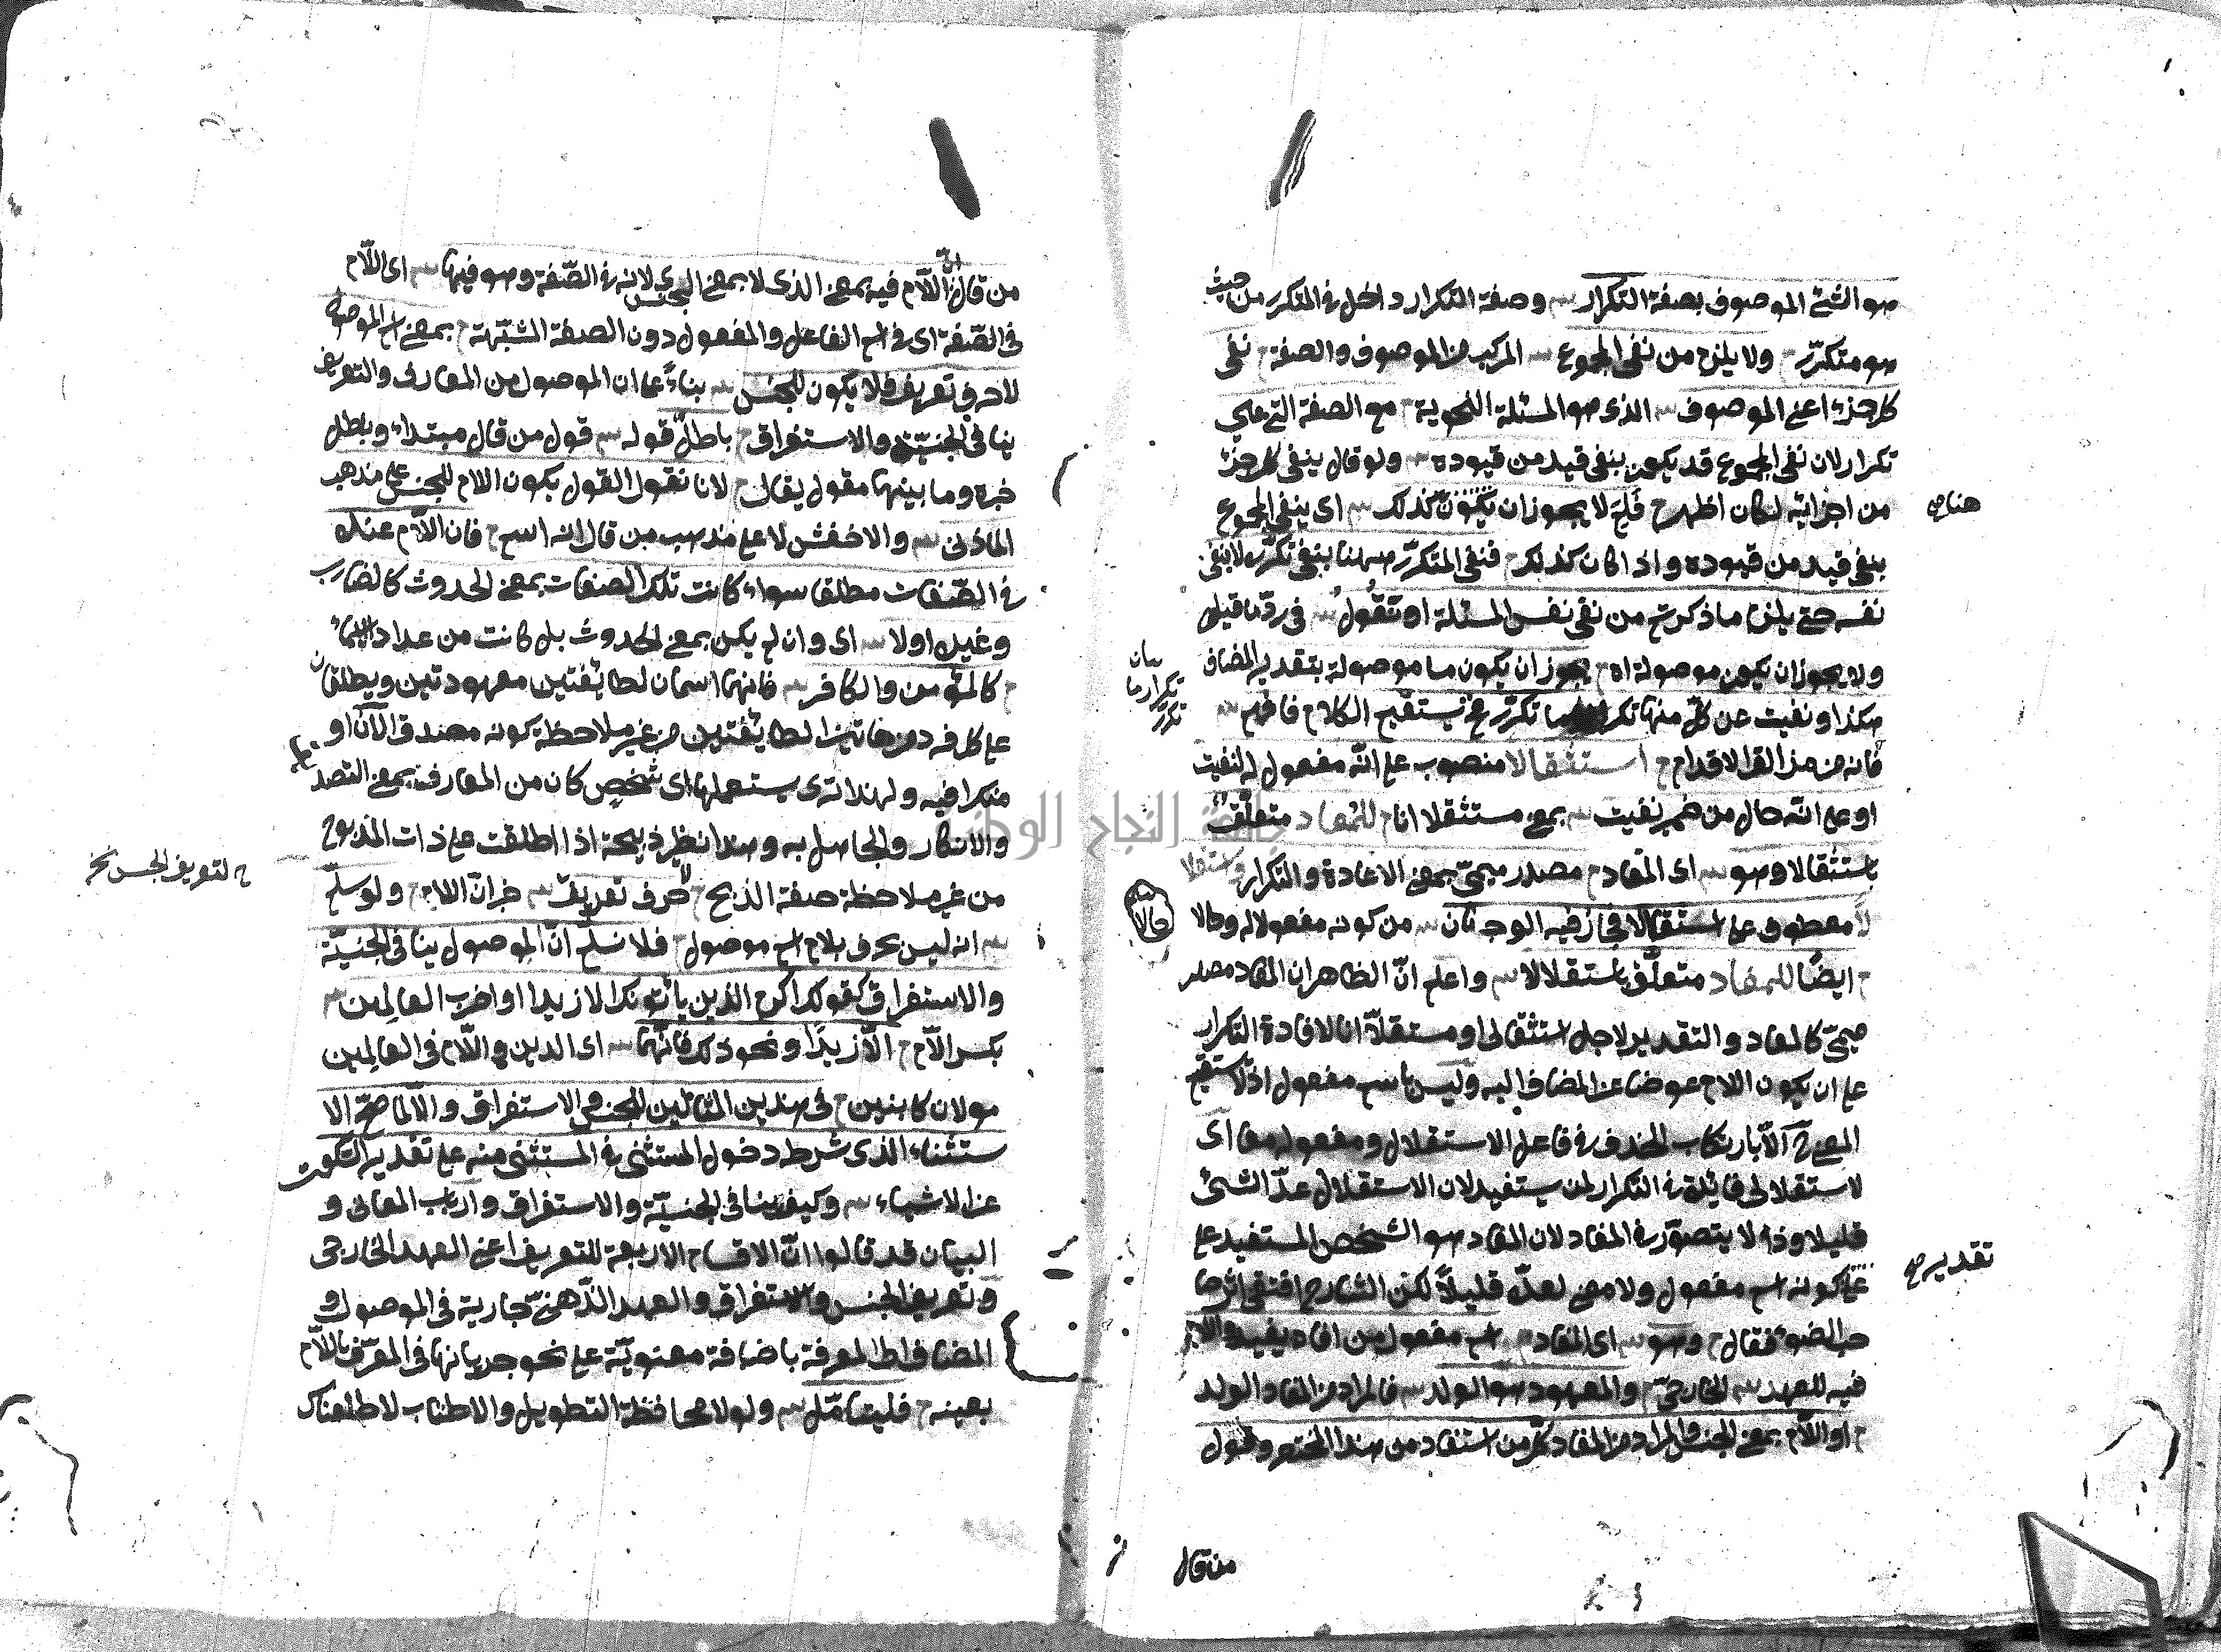 هو الشئ الموصوف بصفة التكرار وصفة التكرار داخل في المتكرر من حيث
هو متكرّر ولا يلزم من نفى المجموع المركب من الموصوف والصفة نفى
كل جزء اعنى الموصوف الذى هو المسئلة النحوية مع الصفة التى هى
تكرار لان نفى المجموع قد يكون بنفى قيد من قيوده ولو قال ينفى كل جزء
من اجزائه لكان اظهر فلم لا يجوز ان يكون كذلك اى ينفى المجموع
هنا صح
بنفى قيد من قيوده واذا كان كذلك فنفى المتكرّر ههنا بنفى تكرّره لا بنفى
نفسه حتى يلزم ما ذكرتم من نفى نفس المسئلة او نقول فى ردّ ما قيل
ولا يجوز ان يكون موصولة اه يجوز ان يكون ما موصولة بتقدير المضاف
بيان تكرار ما تكرّر
هكذا ونفيت عن كلّ منهما تكرار ما تكرّر حتى يستقيم الكلام فافهم
فانه من مزالق الاقدام استثقالا منصوب على انّه مفعول له لنفيت
او على انّه حال من ضمير نفيت بمعنى مستثقلا انا للمُعاد متعلّق
باستثقالا وهو اى المعاد مصدر ميمىّ بمعنى الاعادة والتكرار واستقلا
لاً معطوف على استثقالا فجاز فيه الوجهان من كونه مفعولا له وحالا
حالا
ايضًا للمفاد متعلّق باستقلالا واعلم انّ الظاهر ان المفاد مصدر
ميمىّ كالمعاد والتقدير لاجل استثقالى او مستقلاّ انا لافادة التكرار
على ان يكون اللام عوضا عن المضاف اليه وليس باسم مفعول اذ لا يستقيم
المعنى ح الاّ بارتكاب الحذف فى فاعل الاستقلال ومفعوله معا اى
لاستقلالى فائدة التكرار لمن يستفيد لان الاستقلال عدّ الشئ
قليلا وذا لا يتصوّر فى المفاد لان المفاد هو الشخص المستفيد على
على كونه اسم مفعول ولا معنى لعدّه قليلاً لكن الشارح اقتفى اثر صا
تقدير صح
حب الضوء فقال وهو اى المفاد اسم مفعول من افاد يفيد واللام
فيه للعهد الخارجىّ والمعهود هو الولد فالمراد من المفاد الولد
او اللام بمعنى الجنس والمراد من المفاد كلّ من استفاد من هذا المختصر وقول
من قال
من قال انّ اللّام فيه بمعنى الذى لا بمعنى الجنس لانه فى الصّفة وهو فيها اى اللّام
فى الصّفة اى فى اسم الفاعل والمفعول دون الصفة المشبّهة بمعنى اسم الموصول
لا حرف تعريف فلا يكون للجنس بناءً على ان الموصول من المعارف والتعريف
ينافى الجنسيّة والاستغراق باطلٌ قوله قول من قال مبتداء وباطل
خبره وما بينهما مقول يقال لانا نقول القول بكون اللام للجنس على مذهب
المازنى والاخفش لا على مذهب من قال انه اسم فان اللّام عنده
فى الصّفات مطلقا سواء كانت تلك الصفات بمعنى الحدوث كالضارب
وغيره اولا اى وان لم يكن بمعنى الحدوث بل كانت من عداد الاسماء
كالمؤمن والكافر فانهما اسمان لطائفتين معهودتين ويطلقان
على كل فرد من هاتين الطائفتين من غير ملاحظة كونه مصدقا الآن او
منكرا فيه ولهذا ترى يستعملها اى شخصٍ كان من المعارف بمعنى التصد
يق
والانكار والحاصل به وهذا نظير ذبيحة اذا اطلقت على ذات المذبوح
من غير ملاحظة صفة الذبح حرف تعريف خبر انّ اللام ولو سلّم
لتعريف الجنس نخ
انه ليس بحرف بل اسم موصول فلا نسلّم انّ الموصول ينافى الجنسيّة
والاستغراق كقولك اكرم الذين يأتونك الا زيدا او اضرب العالِمين
بكسر الاّم الاّ زيدًا ونحو ذلك فانّهما اى الذين واللّام فى العالِمين
مولان كائنين فى هذين المثالين للجنس والاستغراق والاّ لما صحّ الا
ستثناء الذى شرطه دخول المستثنى فى المستثنى منه على تقدير السّكوت
عن الاشياء وكيف ينافى الجنسيّة والاستغراق وارباب المعانى و
البيان قد قالوا انّ الاقسام الاربعة للتعريف اعنى العهد الخارجى
وتعريف الجنس والاستغراق والعهد الذّهنىّ جارية فى الموصول و
المضاف الى المعرفة باضافة معنويّة على نحو جريانها فى المعرّف باللّام
بعينه فليتأمّل ولولا محافظة التطويل والاطناب لاطلعناك
جامعة النجاح الوطنية